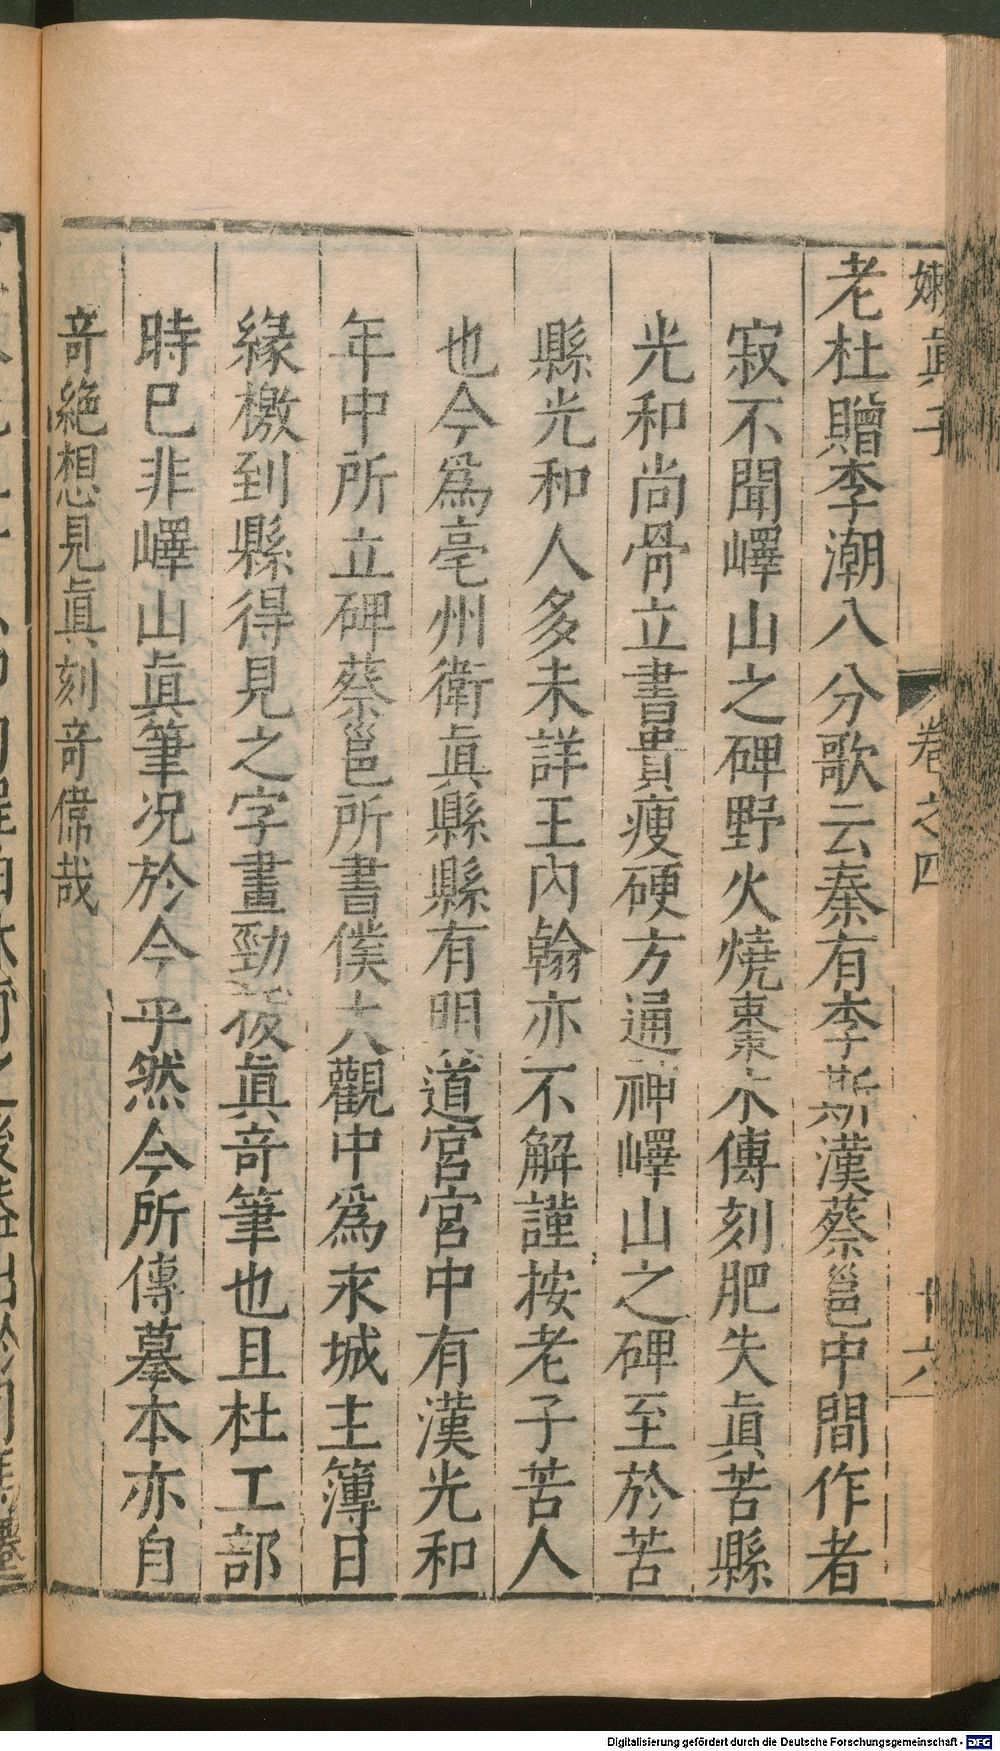 嬾真子 卷之四 廿六
老杜贈李潮八分歌云秦有李斯漢蔡邕中間作者
寂不聞嶧山之碑野火燒棗木傳刻肥失眞苦縣
光和尚骨立書貴瘦硬方通神嶧山之碑至於苦
縣光和人多未詳王內翰亦不解謹按老子苦人
也今爲亳州衛眞縣縣有明道宮宮中有漢光和
年中所立碑蔡邕所書僕大觀中爲永城主簿日
緣檄到縣得見之字畫勁拔眞竒筆也且杜工部
時已非嶧山眞筆况於今乎然今所傳摹本亦自
竒絶想見眞刻竒偉哉
Digitalisierung gefördert durch die Deutsche Forschungsgemeinschaft - DFG